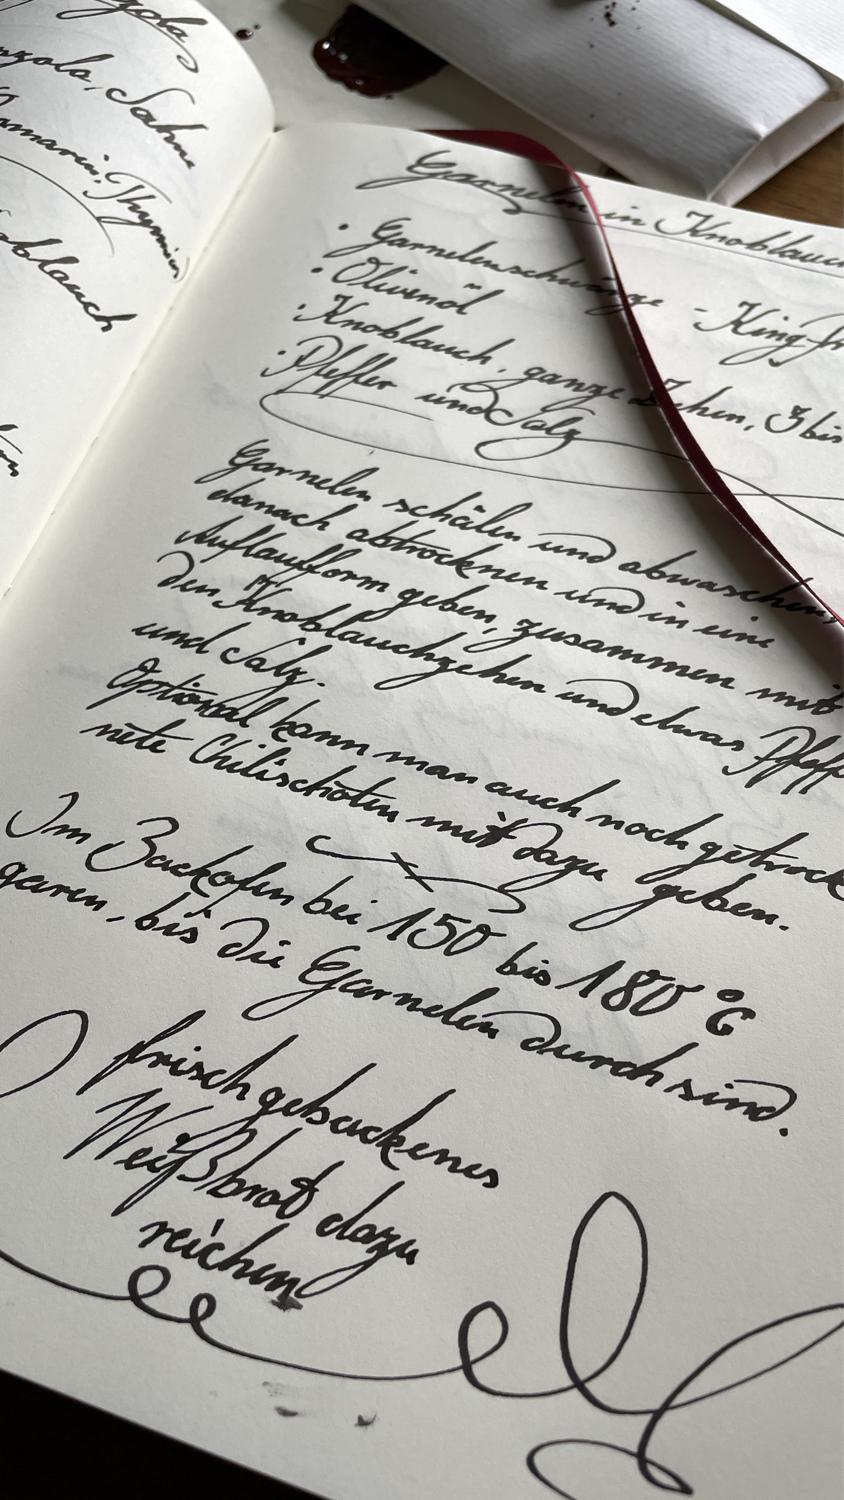 Sahne
Thymian
Garnelen in Knoblauch
· Garnelenschwänze - King-Pr
· Olivenöl
· Knoblauch, ganze Zehen, 3 bis
· Pfeffer und Salz
Garnelen schälen und abwaschen,
danach abtrocknen und in eine
Auflaufform geben, zusammen mit
den Knoblauchzehen und etwas Pfeffe
und Salz.
Optional kann man auch noch getrock
nete Chilischoten mit dazu geben.
Im Backofen bei 150 bis 180 °C
garen, bis die Garnelen durch sind.
frisch gebackenes
Weißbrot dazu
reichen